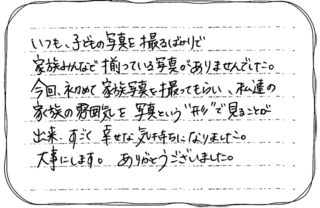 いつも、子どもの写真を撮るばかりで
家族みんなで揃っている写真がありませんでした。
今回、初めて家族写真を撮ってもらい、私達の
家族の雰囲気を写真という"形"で見ることが
出来、すごく幸せな気持ちになりました。
大事にします。ありがとうございました。